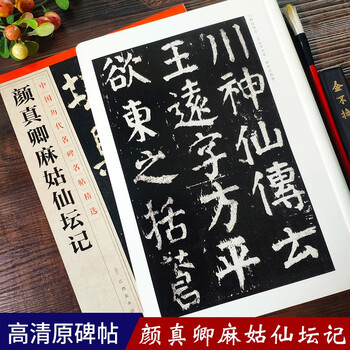 中国历代名碑名帖精选
颜真卿麻姑仙坛记
川神仙傳云
王遠字方平
欲東之括蒼
高清原碑帖
颜真卿麻姑仙坛记